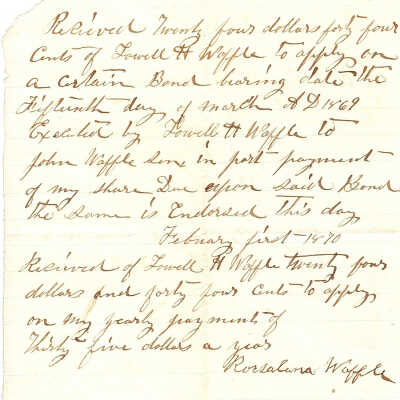 Recieved Twenty four dollars forty four
Cents of Lowell H Waffle to apply on
a certain Bond bearing date the
Fifteenth day of march AD 1869
Executed by Lowell H Waffle to
John Waffle sone in part payment
of my share Due upon said Bond
the same is Endorsed this day
February first 1870
Recieved of Lowell H Waffle twenty four
dollars and forty four cents to apply
on my yearly payments of
Thirty five dollars a year
Rorsaluna Waffle